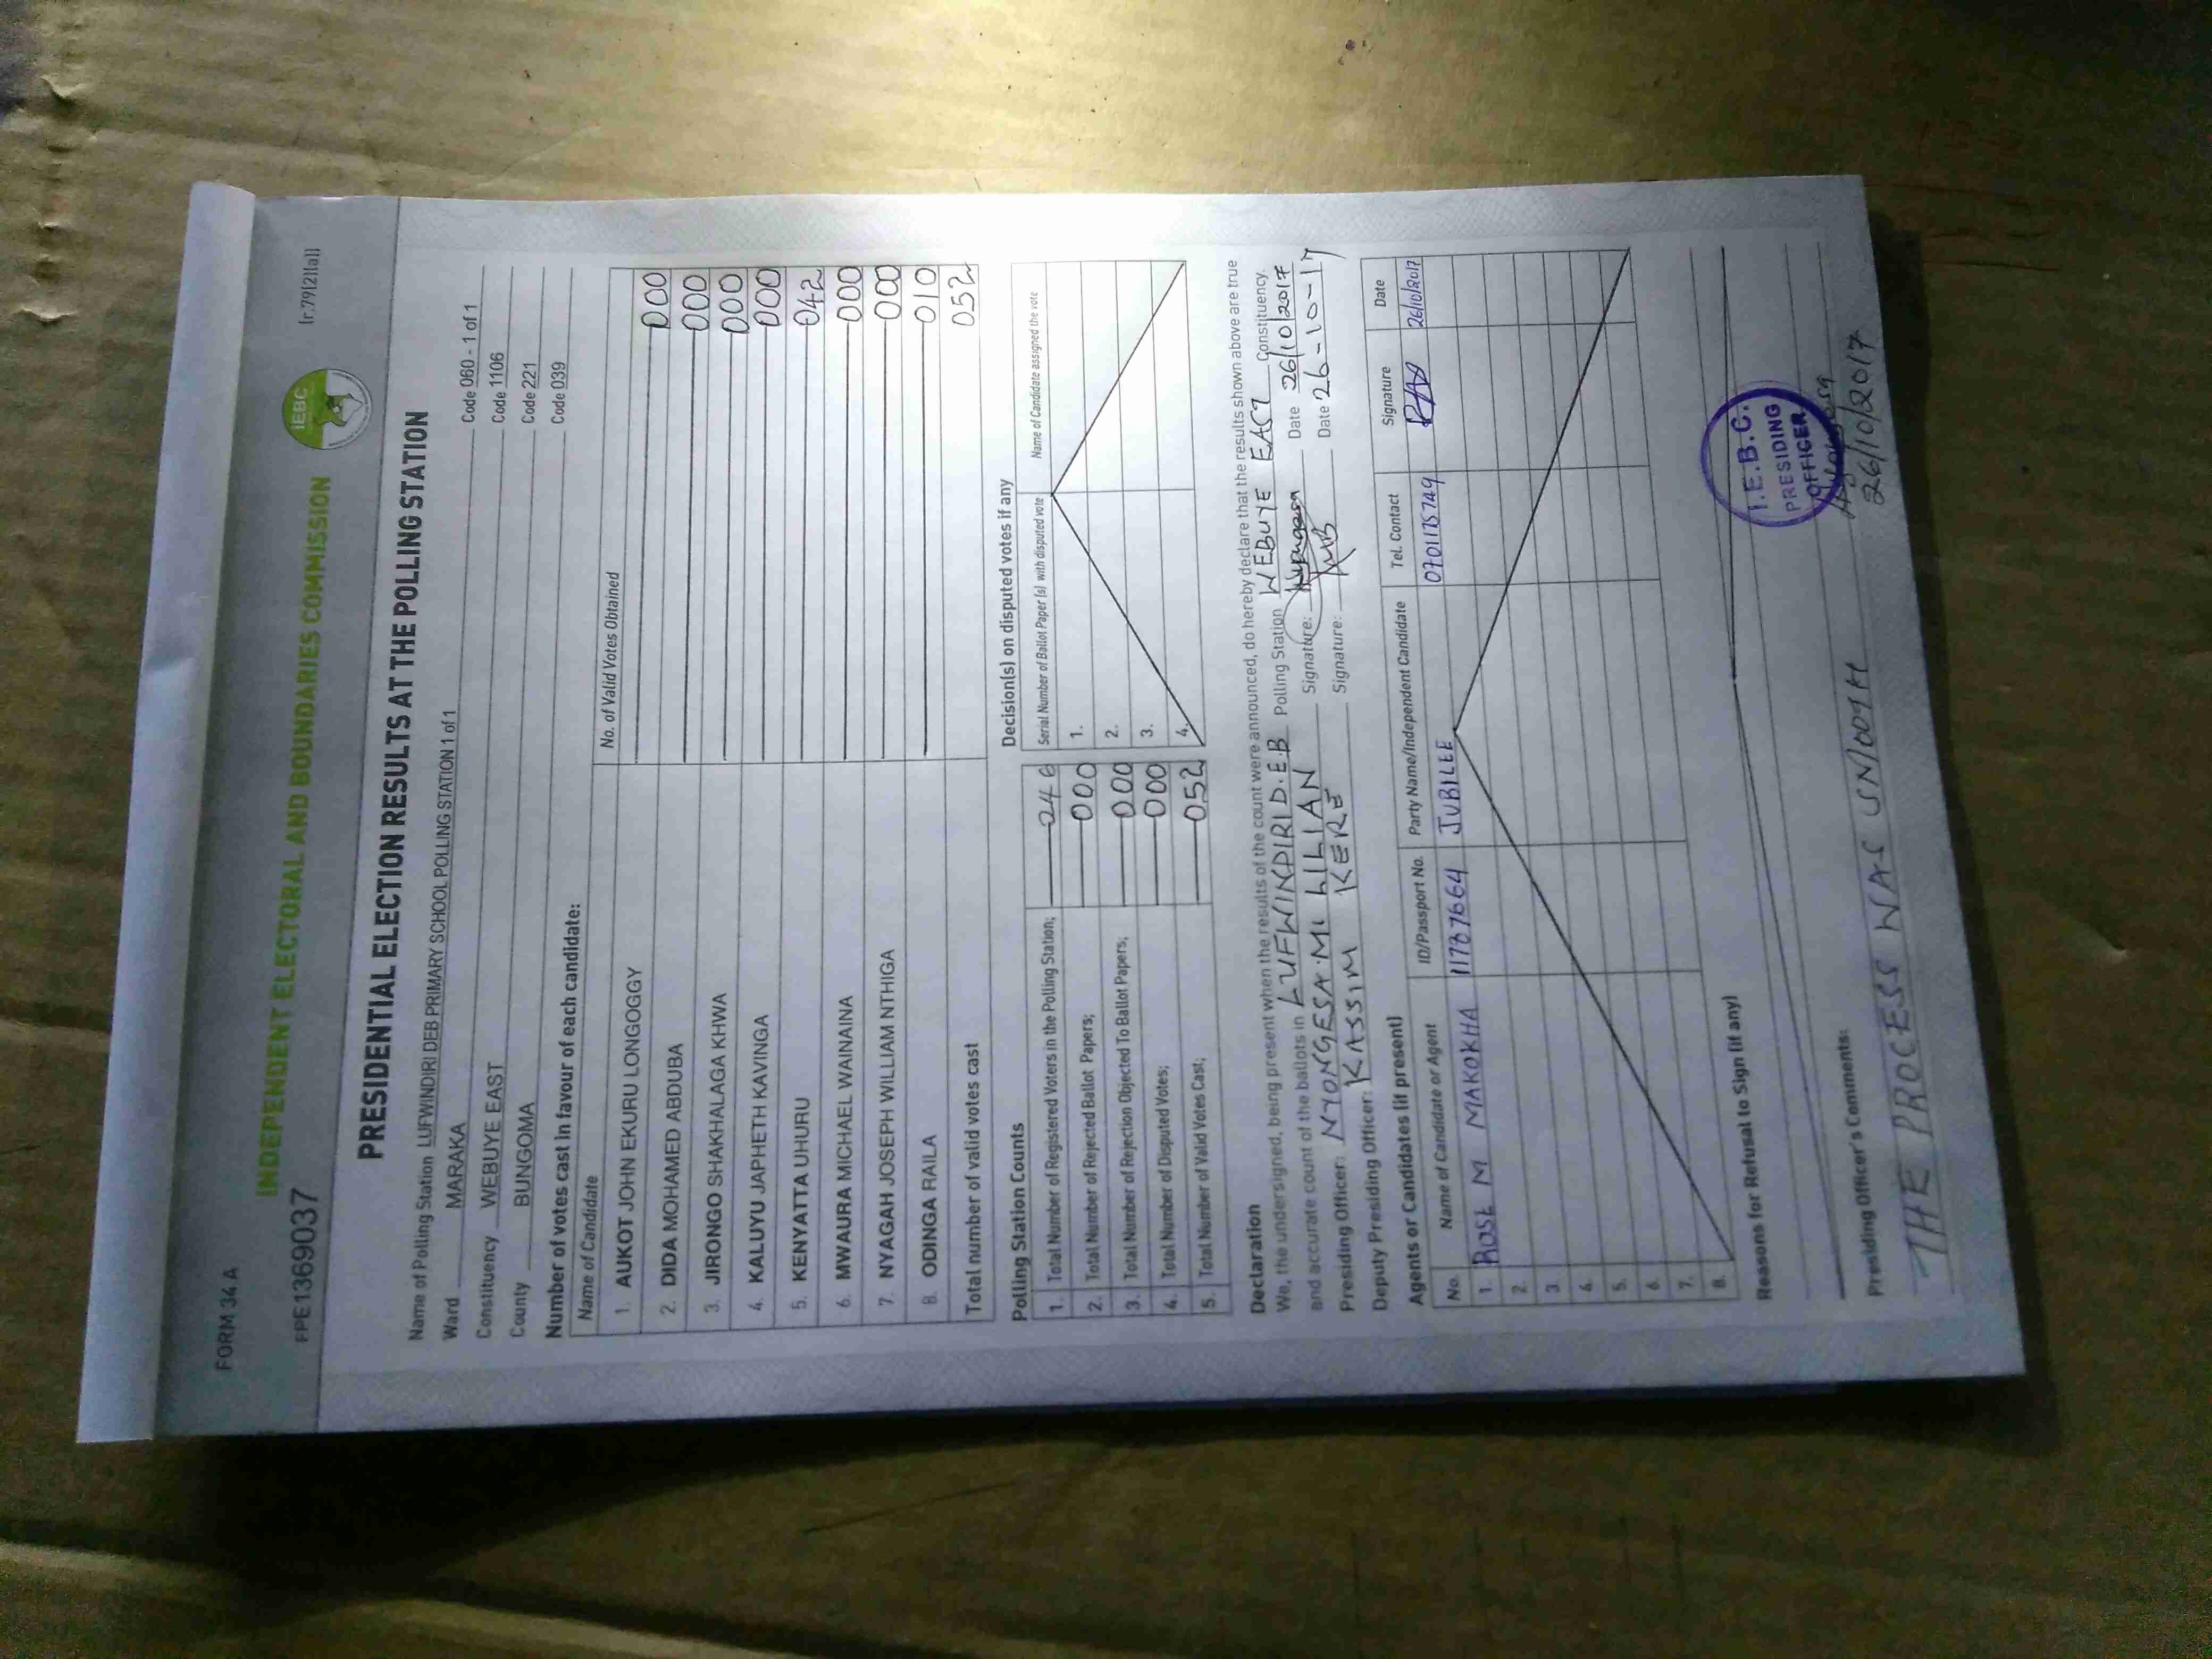 FORM 34 A
INDEPENDENT ELECTORAL AND BOUNDARIES COMMISSION
IEBC
FPE1369037
[r.79(2)(a)]
PRESIDENTIAL ELECTION RESULTS AT THE POLLING STATION
Name of Polling Station LUFWINDIRI DEB PRIMARY SCHOOL POLLING STATION 1 of 1 Code 060 - 1 of 1
Ward MARAKA Code 1106
Constituency WEBUYE EAST Code 221
County BUNGOMA Code 039
Number of votes cast in favour of each candidate:
Name of Candidate No. of Valid Votes Obtained
1. AUKOT JOHN EKURU LONGOGGY 000
2. DIDA MOHAMED ABDUBA 000
3. JIRONGO SHAKHALAGA KHWA 000
4. KALUYU JAPHETH KAVINGA 000
5. KENYATTA UHURU 042
6. MWAURA MICHAEL WAINAINA 000
7. NYAGAH JOSEPH WILLIAM NTHIGA 000
8. ODINGA RAILA 010
Total number of valid votes cast 052
Polling Station Counts
1. Total Number of Registered Voters in the Polling Station; 246
2. Total Number of Rejected Ballot Papers; 000
3. Total Number of Rejection Objected To Ballot Papers; 000
4. Total Number of Disputed Votes; 000
5. Total Number of Valid Votes Cast; 052
Decision(s) on disputed votes if any
Serial Number of Ballot Paper (s) with disputed vote Name of Candidate assigned the vote
1.
2.
3.
4.
Declaration
We, the undersigned, being present when the results of the count were announced, do hereby declare that the results shown above are true
and accurate count of the ballots in LUFWINDIRI D.E.B Polling Station WEBUYE EAST Constituency.
Presiding Officer: NYONGESA MI LILIAN Signature: Date 26/10/2017
Deputy Presiding Officer: KASSIM KERE Signature: Date 26-10-17
Agents or Candidates (if present)
No. Name of Candidate or Agent ID/Passport No. Party Name/Independent Candidate Tel. Contact Signature Date
1. ROSE M MAKOKHA 11787664 JUBILEE 0701175749 26/10/2017
2.
3.
4.
5.
6.
7.
8.
Reasons for Refusal to Sign (if any)
I.E.B.C.
PRESIDING
OFFICER
Presiding Officer's Comments:
26/10/2017
THE PROCESS WAS SMOOTH